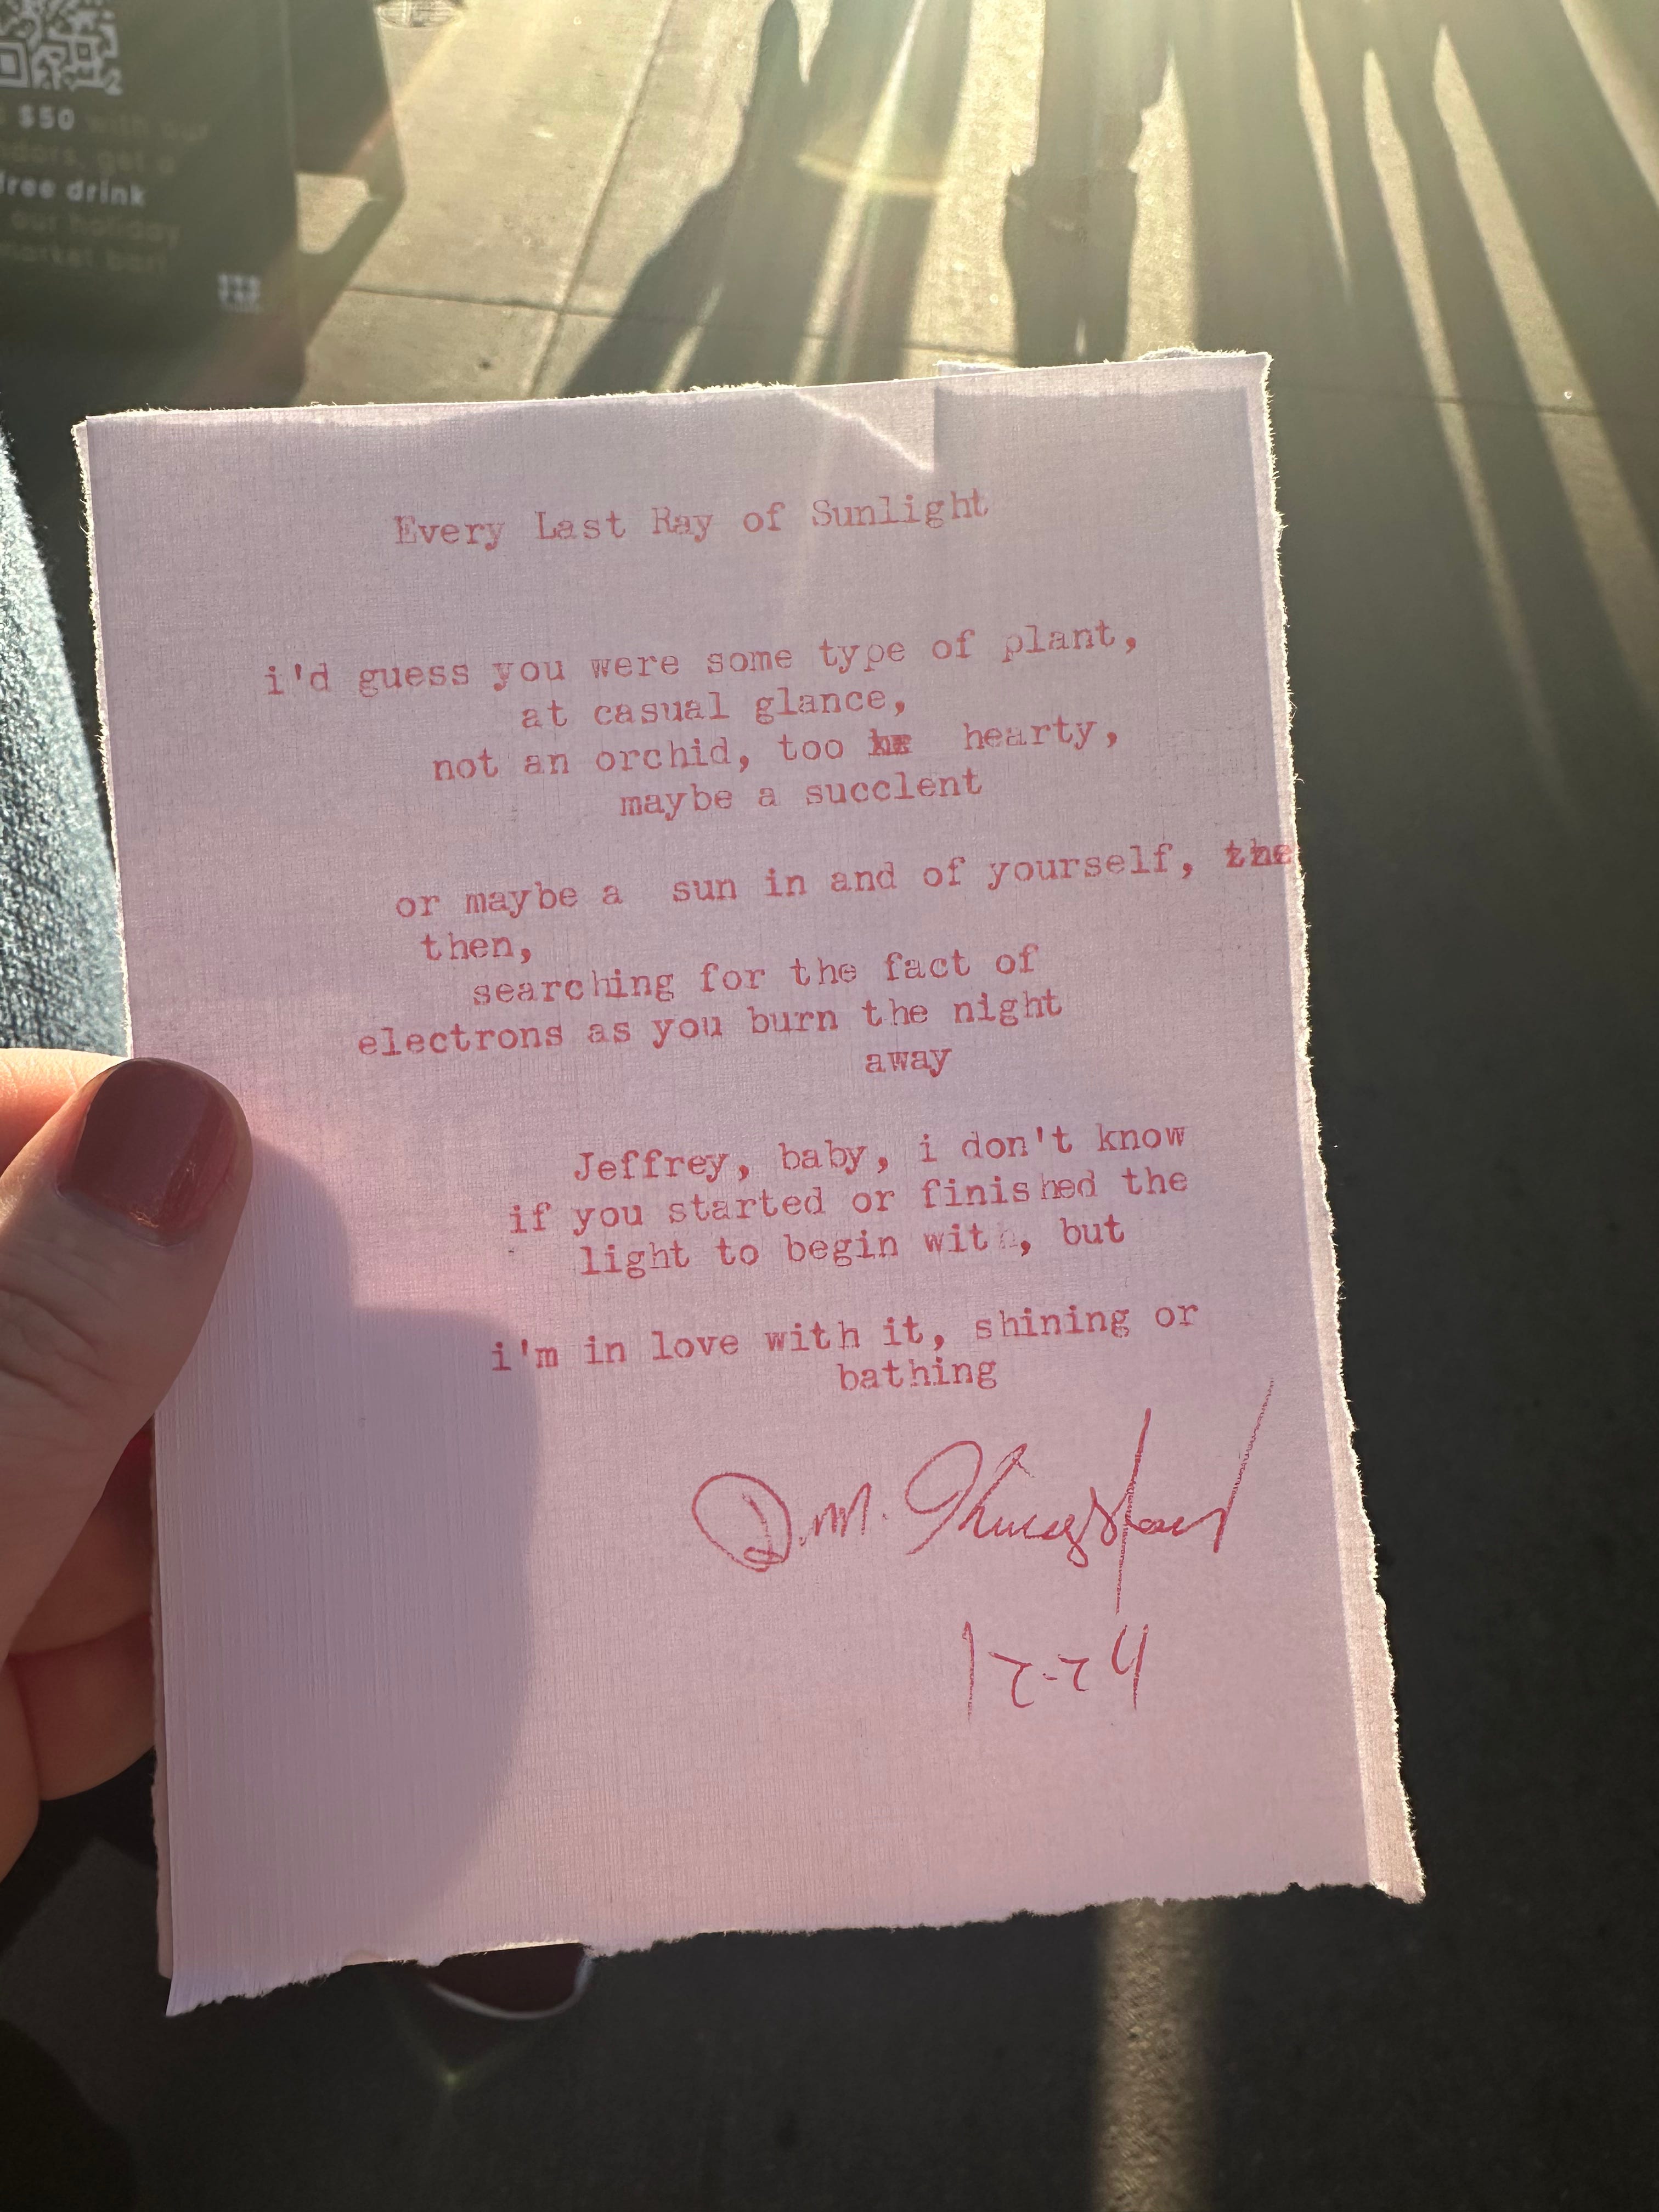 $50 with our
get a
free drink
our holiday
market bar!
Every Last Ray of Sunlight
i'd guess you were some type of plant,
at casual glance,
not an orchid, too hearty,
maybe a succlent
or maybe a sun in and of yourself, the
then,
searching for the fact of
electrons as you burn the night
away
Jeffrey, baby, i don't know
if you started or finished the
light to begin with, but
i'm in love with it, shining or
bathing
D.M.
12-24